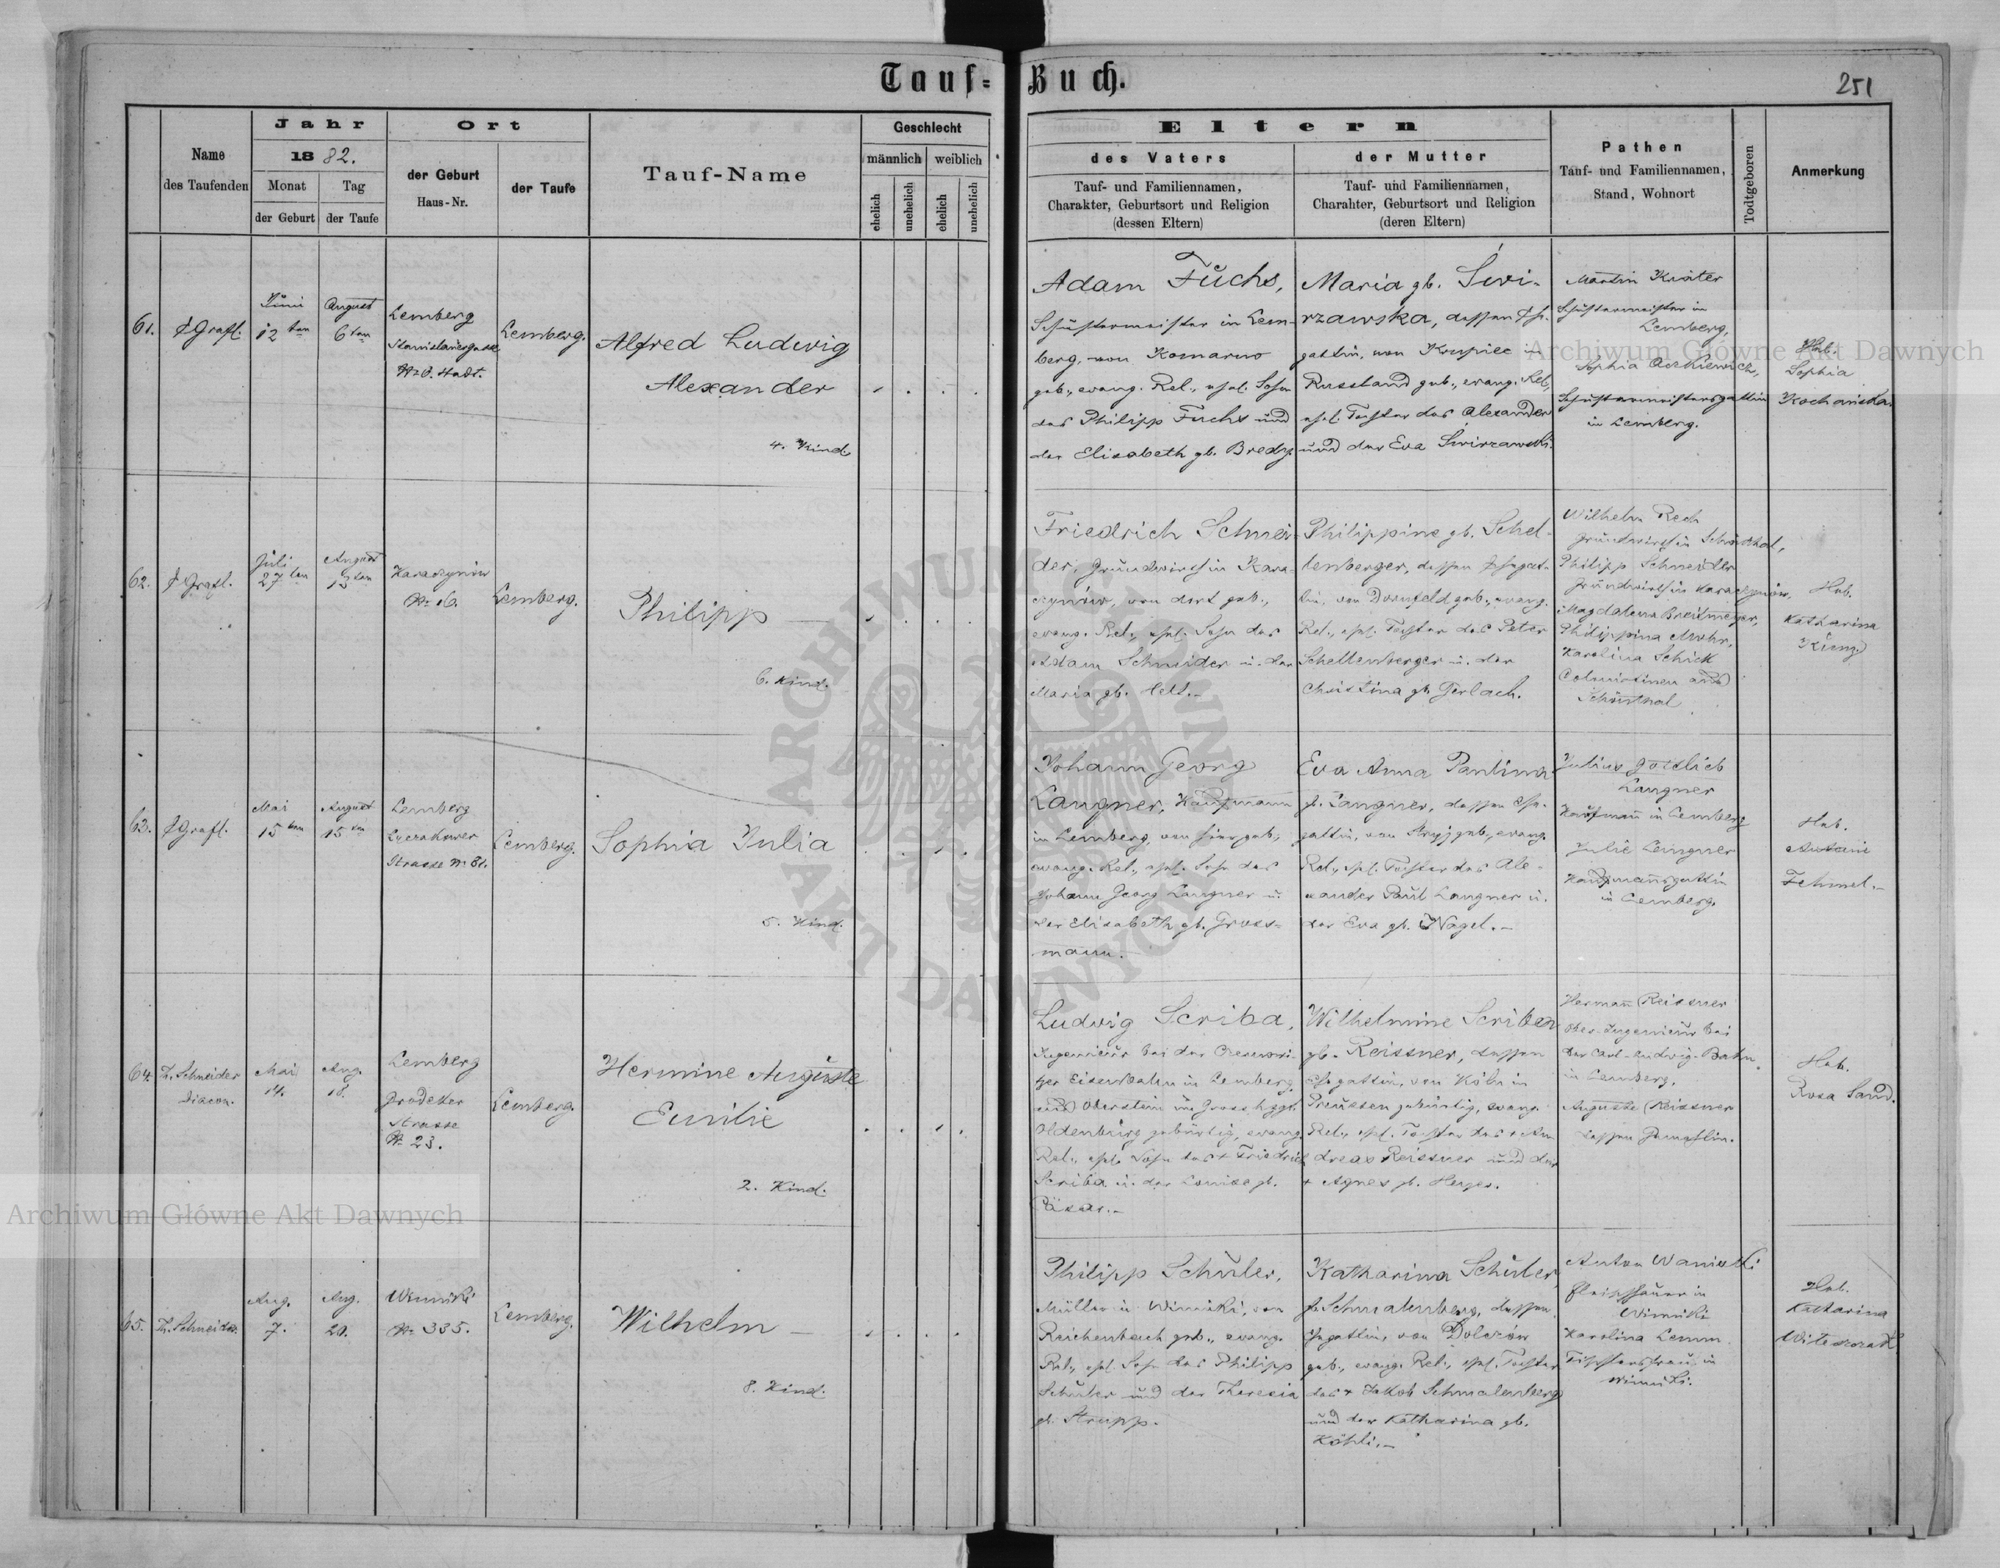 Tauf-Buch.
251
Name
des Taufenden
Jahr
1882.
Monat
der Geburt
Tag
der Taufe
Ort
der Geburt
Haus-Nr.
der Taufe
Tauf-Name
Geschlecht
männlich
weiblich
ehelich
unehelich
ehelich
unehelich
Eltern
des Vaters
Tauf- und Familiennamen,
Charakter, Geburtsort und Religion
(dessen Eltern)
der Mutter
Tauf- und Familiennamen,
Charakter, Geburtsort und Religion
(deren Eltern)
Pathen
Tauf- und Familiennamen,
Stand, Wohnort
Todtgeborene
Anmerkung
61.
Juni
12 ten
August
6 ten
Lemberg
Lemberg.
Alfred Ludwig
Alexander
4. Kind
Adam Fuchs,
Schustermeister in Lem-
berg, von Komarno
geb., evang. Rel., ehel. Sohn
des Philipp Fuchs und
der Elisabeth gb. Bredy.
Maria gb. Świ-
rzawska, dessen Ehe-
gattin, von Krupiec in
Russland geb., evang. Rel.,
ehel. Tochter des Alexander
und der Eva Świrzawski.
Martin Kräter
Schustermeister in
Lemberg,
Sophia
Schustermeistersgattin
in Lemberg.
Heb.
Sophia
Kochańska.
62.
Juli
27 ten
August
13 ten
Karaczynów
Nr 16.
Lemberg.
Philipp
6. Kind.
Friedrich Schnei-
der, Grundwirth in Kara-
czynów, von dort geb.,
evang. Rel., ehel. Sohn des
Adam Schneider u. der
Maria gb.
Philippine gb. Schel-
lenberger, dessen Ehegat-
tin, von Dornfeld geb., evang.
Rel., ehel. Tochter des Peter
Schellenberger u. der
Christina gb. Gerlach.
Wilhelm Rech
Grundwirth in Schönthal,
Philipp Schneider
Grundwirth in Karaczynów,
Magdalena Breitmeyer,
Philippina Mohr,
Karolina Schick
Colonistinen aus
Schönthal
Heb.
Katharina
Kunz
63.
Mai
15 ten
August
15 ten
Lemberg
Lyczakower
Strasse Nr
Lemberg.
Sophia Julia
5. Kind.
Johann Georg
Langner, Kaufmann
in Lemberg, von hier geb.,
evang. Rel., ehel. Sohn des
Johann Georg Langner u.
der Elisabeth gb. Gross-
mann.
Eva Anna Paulina
gb. Langner, dessen Ehe-
gattin, von Stryj geb., evang.
Rel., ehel. Tochter des Ale-
xander Paul Langner u.
der Eva gb. Nagel.
Julius Gottlieb
Langner
Kaufmann in Lemberg
Julie Langner
Kaufmannsgattin
in Lemberg.
Heb.
64.
Th. Schneider
Diacon.
Mai
14.
Aug.
18.
Lemberg
Grodeker
Strasse
Nr 23.
Lemberg.
Hermine Auguste
Emilie
2. Kind.
Ludwig Scriba,
Ingenieur bei der Czernowi-
tzer Eisenbahn in Lemberg,
aus Oberstein im Grosshzgt.
Oldenburg gebürtig, evang.
Rel., ehel. Sohn des + Friedrich
Scriba u. der Louise gb.
Cäsar.
Wilhelmine Scriba
gb. Reissner, dessen
Ehegattin, von Köln in
Preussen gebürtig, evang.
Rel., ehel. Tochter des + An-
dreas Reissner und der
+ Agnes gb.
Hermann Reissner
Ober-Ingenieur bei
der Carl-Ludwig-Bahn
in Lemberg.
Auguste Reissner
dessen Gemahlin.
Heb.
Rosa Sand.
65.
Th. Schneider.
Aug.
7.
Aug.
20.
Winniki
Nr 335.
Lemberg.
Wilhelm
8. Kind.
Philipp Schuler,
Müller in Winniki, von
Reichenbach geb., evang.
Rel., ehel. Sohn des Philipp
Schuler und der Theresia
gb. Strupp.
Katharina Schuler,
gb. Schmalenberg, dessen
Ehegattin, von
geb., evang. Rel., ehel. Tochter
des + Jakob Schmalenberg
und der Katharina gb.
Köhli.
Anton
Fleischhauer in
Winniki
Karolina Lemm
Tischlersfrau in
Winniki.
Heb.
Katharina
Archiwum Główne Akt Dawnych
Archiwum Główne Akt Dawnych
ARCHIWUM GŁÓWNE AKT DAWNYCH